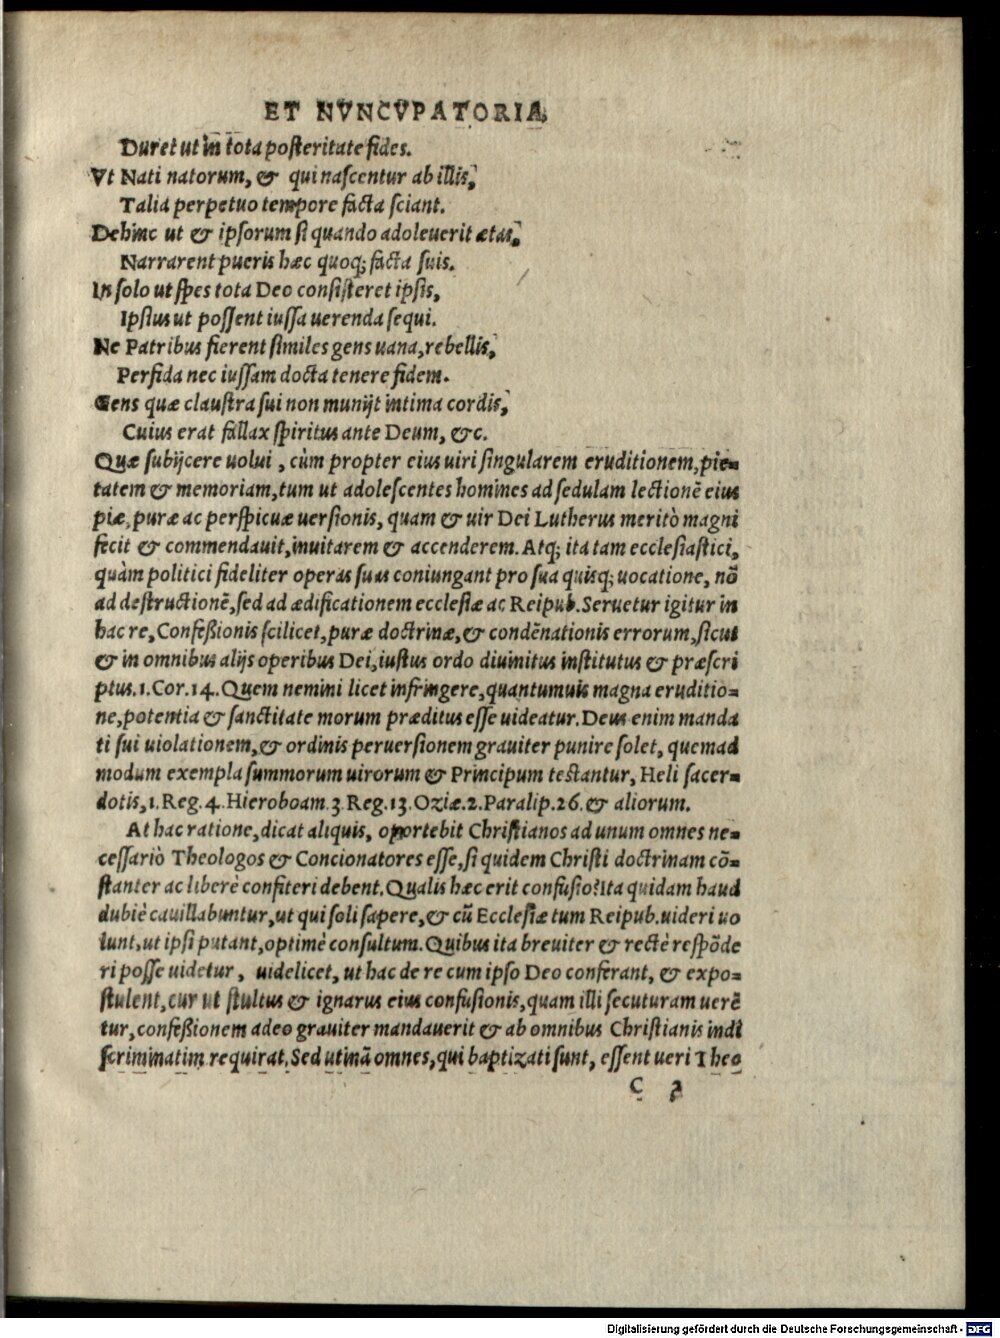 ET NVNCVPATORIA.
Duret ut in tota posteritate fides.
Vt Nati natorum, & qui nascentur ab illis,
Talia perpetuo tempore facta sciant.
Dehinc ut & ipsorum si quando adoleuerit ætas,
Narrarent pueris hæc quoq; facta suis.
In solo ut spes tota Deo consisteret ipsis,
Ipsius ut possent iussa uerenda sequi.
Ne Patribus fierent similes gens uana, rebellis,
Perfida nec iussam docta tenere fidem.
Gens quæ claustra sui non munijt intima cordis,
Cuius erat fallax spiritus ante Deum, &c.
Quæ subijcere uolui, cùm propter eius uiri singularem eruditionem, pie=
tatem & memoriam, tum ut adolescentes homines ad sedulam lectionē eius
piæ, puræ ac perspicuæ uersionis, quam & uir Dei Lutherus meritò magni
fecit & commendauit, inuitarem & accenderem. Atq; ita tam ecclesiastici,
quàm politici fideliter operas suas coniungant pro sua quisq; uocatione, nō
ad destructionē, sed ad ædificationem ecclesiæ ac Reipub. Seruetur igitur in
hac re, Confeßionis scilicet, puræ doctrinæ, & condēnationis errorum, sicut
& in omnibus alijs operibus Dei, iustus ordo diuinitus institutus & præscri
ptus. 1. Cor. 14. Quem nemini licet infringere, quantumuis magna eruditio=
ne, potentia & sanctitate morum præditus esse uideatur. Deus enim manda
ti sui uiolationem, & ordinis peruersionem grauiter punire solet, quemad
modum exempla summorum uirorum & Principum testantur, Heli sacer=
dotis, 1. Reg. 4. Hieroboam. 3. Reg. 13. Oziæ. 2. Paralip. 26. & aliorum.
At hac ratione, dicat aliquis, oportebit Christianos ad unum omnes ne=
cessariò Theologos & Concionatores esse, si quidem Christi doctrinam cō=
stanter ac liberè confiteri debent. Qualis hæc erit confusio? Ita quidam haud
dubiè cauillabuntur, ut qui soli sapere, & cū Ecclesiæ tum Reipub. uideri uo
lunt, ut ipsi putant, optimè consultum. Quibus ita breuiter & rectè respōde
ri posse uidetur, uidelicet, ut hac de re cum ipso Deo conferant, & expo=
stulent, cur ut stultus & ignarus eius confusionis, quam illi secuturam uerē
tur, confeßionem adeo grauiter mandauerit & ab omnibus Christianis indi
scriminatim requirat. Sed utinā omnes, qui baptizati sunt, essent ueri Theo
C 3
Digitalisierung gefördert durch die Deutsche Forschungsgemeinschaft - DFG